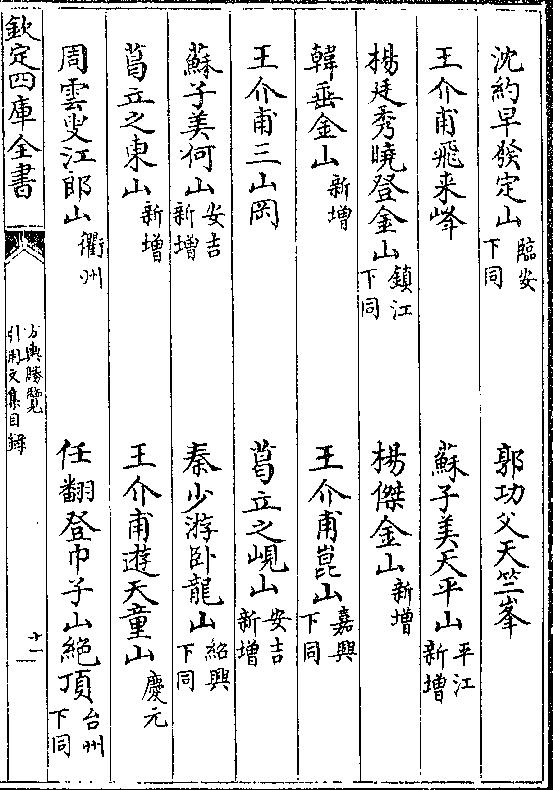 沈約早發定山 臨安下同 郭功父天竺峯
王介甫飛来峰 蘇子美天平山 平江新增
楊廷秀曉登金山 鎮江下同 楊傑金山 新增
韓垂金山 新增 王介甫崑山 嘉興下同
王介甫三山岡 葛立之峴山 安吉新增
蘇子美何山 安吉新增 秦少游卧龍山 紹興下同
葛立之東山 新增 王介甫遊天童山 慶元
周雲叟江郎山 衢州 任翻登巾子山絶頂 台州下同
欽定四庫全書 方輿勝覽引用文集目録 十一